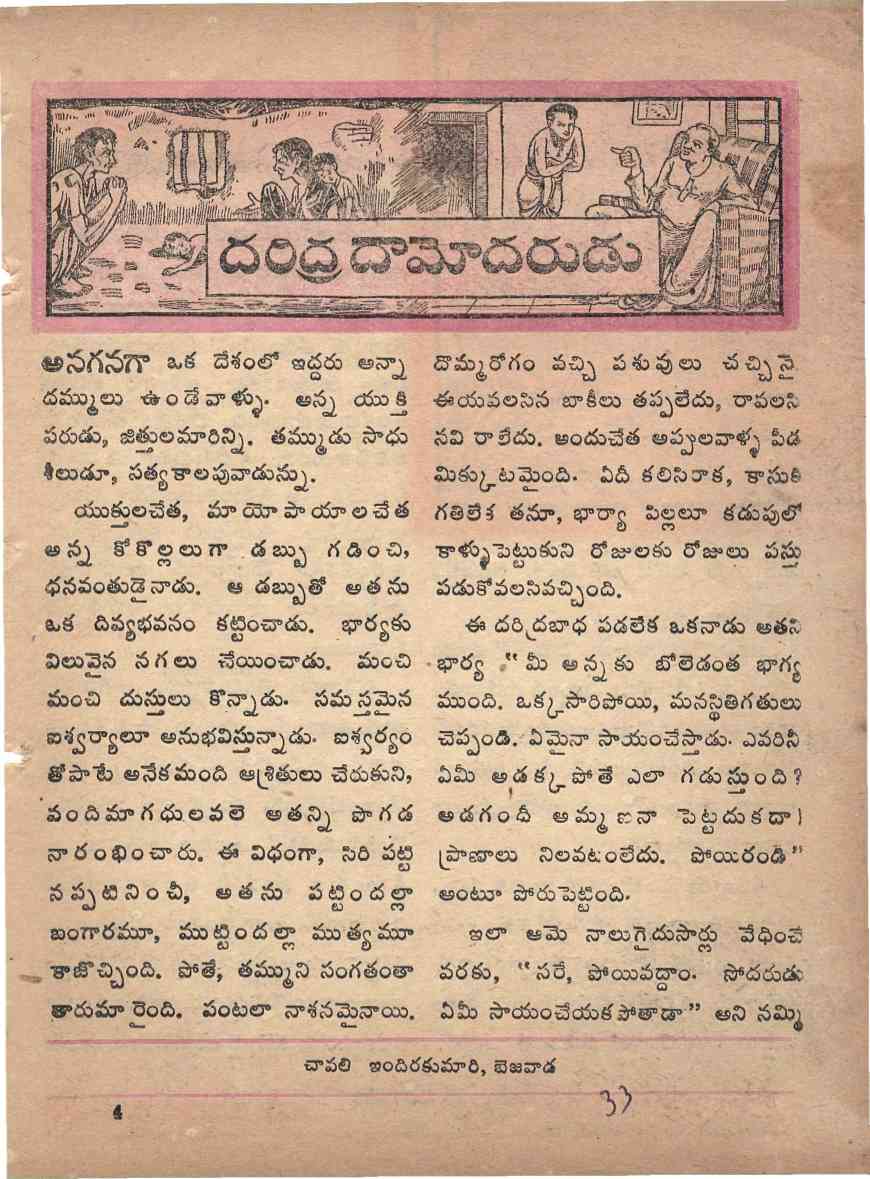 దరిద్రదామోదరుడు
అనగనగా ఒక దేశంలో ఇద్దరు అన్నా
దమ్ములు ఉండేవాళ్ళు. అన్న యుక్తి
పరుడు, జిత్తులమారిన్ని. తమ్ముడు సాధు
శీలుడూ, సత్యకాలపువాడున్ను.
యుక్తులచేత, మాయోపాయాలచేత
అన్న కోకొల్లలుగా డబ్బు గడించి,
ధనవంతుడైనాడు. ఆ డబ్బుతో అతను
ఒక దివ్యభవనం కట్టించాడు. భార్యకు
విలువైన నగలు చేయించాడు. మంచి
మంచి దుస్తులు కొన్నాడు. సమస్తమైన
ఐశ్వర్యాలూ అనుభవిస్తున్నాడు. ఐశ్వర్యం
తోపాటే అనేకమంది ఆశ్రితులు చేరుకుని,
వందిమాగధులవలె అతన్ని పొగడ
నారంభించారు. ఈ విధంగా, సిరి పట్టి
నప్పటినించీ, అతను పట్టిందల్లా
బంగారమూ, ముట్టిందల్లా ముత్యమూ
కాజొచ్చింది. పోతే, తమ్ముని సంగతంతా
తారుమారైంది. పంటలా నాశనమైనాయి.
దొమ్మరోగం వచ్చి పశువులు చచ్చినై
ఈయవలసిన బాకీలు తప్పలేదు, రావలసి
నవి రాలేదు. అందుచేత అప్పులవాళ్ళ పీడ
మిక్కుటమైంది. ఏదీ కలిసిరాక, కాసుకి
గతిలేక తనూ, భార్యా పిల్లలూ కడుపులో
కాళ్ళుపెట్టుకుని రోజులకు రోజులు పస్తు
పడుకోవలసివచ్చింది.
ఈ దరిద్రబాధ పడలేక ఒకనాడు అతని
భార్య "మీ అన్నకు బోలెడంత భాగ్య
ముంది. ఒక్కసారిపోయి, మనస్థితిగతులు
చెప్పండి. ఏమైనా సాయంచేస్తాడు. ఎవరినీ
ఏమీ అడక్కపోతే ఎలా గడుస్తుంది?
అడగందీ అమ్మఐనా పెట్టదుకదా!
ప్రాణాలు నిలవటంలేదు. పోయిరండి"
అంటూ పోరుపెట్టింది.
ఇలా ఆమె నాలుగైదుసార్లు వేధించే
వరకు, "సరే, పోయివద్దాం. సోదరుడు
ఏమీ సాయంచేయకపోతాడా" అని నమ్మి
చావలి ఇందిరకుమారి, బెజవాడ
4
33